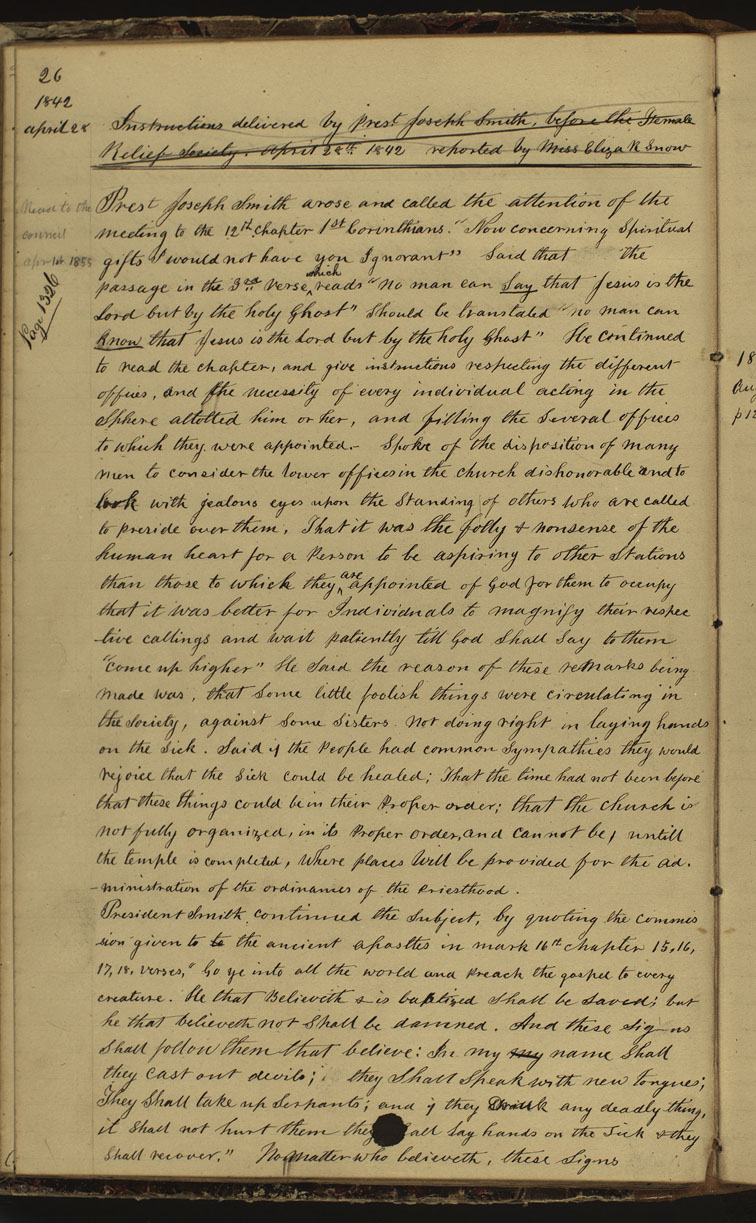 26
1842
april 28
Instructions delivered by Prest Joseph Smith, before the Female
Relief Society. April 28th 1842 reported by Miss Eliza R Snow
Read to the
council
apr 1st 1855
Page 1326
Prest Joseph Smith arose and called the attention of the
meeting to the 12th chapter 1st Corinthians. "Now concerning Spiritual
gifts I would not have you Ignorant" Said that the
passage in the 3rd verse, which reads "no man can Say that Jesus is the
Lord but by the holy Ghost" Should be translated "no man can
Know that Jesus is the Lord but by the holy Ghost" He continued
to read the chapter, and give instructions respecting the different
offices, and the necessity of every individual acting in the
Sphere allotted him or her, and filling the Several offices
to which they were appointed.- Spoke of the disposition of many
men to consider the lower offices in the church dishonorable and to
look with jealous eyes upon the Standing of others who are called
to preside over them, That it was the folly & nonsense of the
human heart for a Person to be aspiring to other Stations
than those to which they are appointed of God for them to occupy
that it was better for Individuals to magnify their respec
-tive callings and wait patiently till God Shall Say to them
"come up higher" He Said the reason of these remarks being
made was, that Some little foolish things were circulating in
the Society, against Some Sisters not doing right in laying hands
on the Sick. Said if the People had common Sympathies they would
rejoice that the Sick could be healed; That the time had not been before
that these things could be in their Proper order; that the church is
not fully organized, in its Proper order, and cannot be, untill
the temple is completed, Where places Will be provided for the ad.
-ministration of the ordinances of the Priesthood.
President Smith continued the Subject, by quoting the commis
sion given to to the ancient apostles in mark 16th chapter 15, 16,
17, 18, verses, "Go ye into all the world and Preach the gospel to every
creature. He that Believeth & is baptized Shall be Saved; but
he that believeth not Shall be damned. And these Signs
Shall follow them that believe: In my my name Shall
they cast out devils; they Shall Speak with new tongues;
They Shall take up Serpants; and if they Drink any deadly thing,
it Shall not hurt them they all lay hands on the Sick & they
Shall recover." No matter who believeth, these Signs
18
Aug
p 12